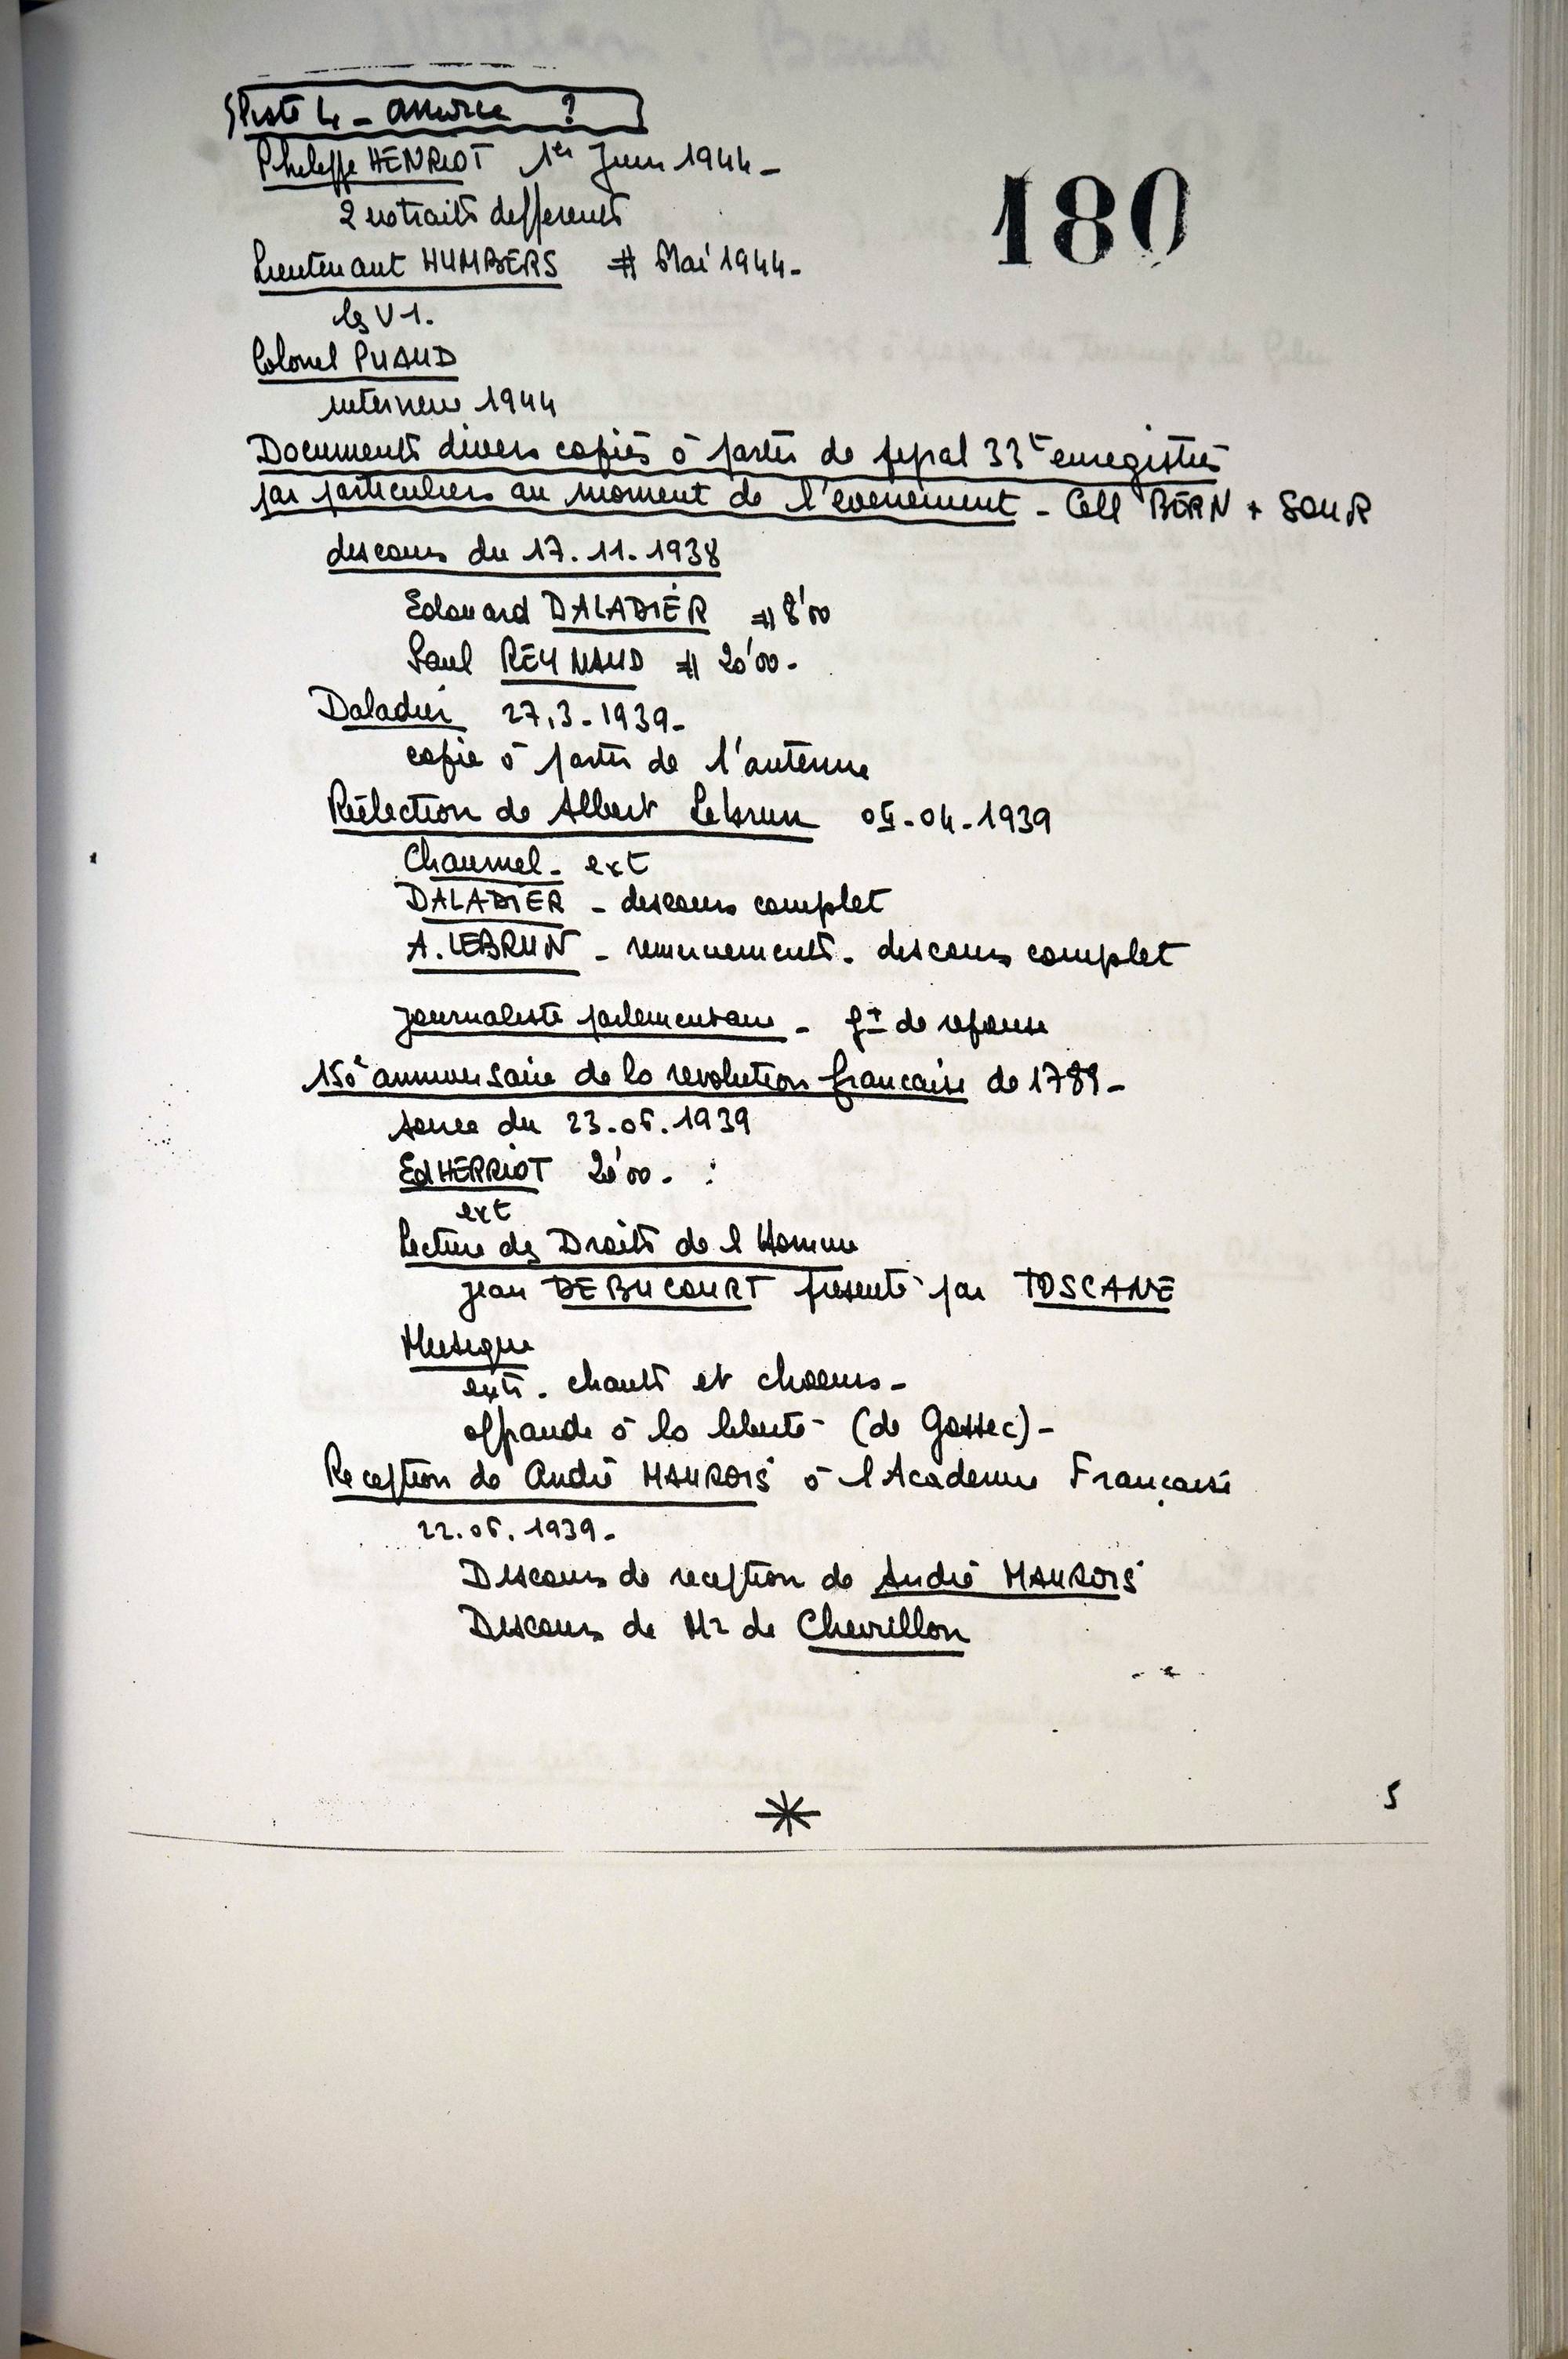 Piste 4 - 
180
Philippe HENRIOT 1er Juin 1944 -
2 extraits differents
Lieutenant HUMBERS # Mai 1944 -
les V1.
Colonel PUAUD
interview 1944
Documents divers copiés à partir de pyral 33t enregistrés
par particuliers au moment de l'evenement - Coll BERN + SOUR
discours du 17.11.1938
Edouard DALADIER # 8'00
Paul REYNAUD # 20'00 -
Daladier 27.3-1939 -
copie à partir de l'antenne
Réélection de Albert Lebrun 05-04-1939
Chaumel - ext
DALADIER - discours complet
A. LEBRUN - remerciements - discours complet
journaliste parlementaire - de reponse
150e anniversaire de la revolution française de 1789 -
du 23.06.1939
Ed HERRIOT 20'00 - :
ext
Lecture des Droits de l Homme
jean DEBUCOURT présenté par TOSCANE
Musique
ext. chants et choeurs -
offrande à la liberté - (de Gossec) -
Reception de André MAUROIS à l Academie Française
22.06.1939 -
Discours de reception de André MAUROIS
Discours de Mr de Chevrillon
5